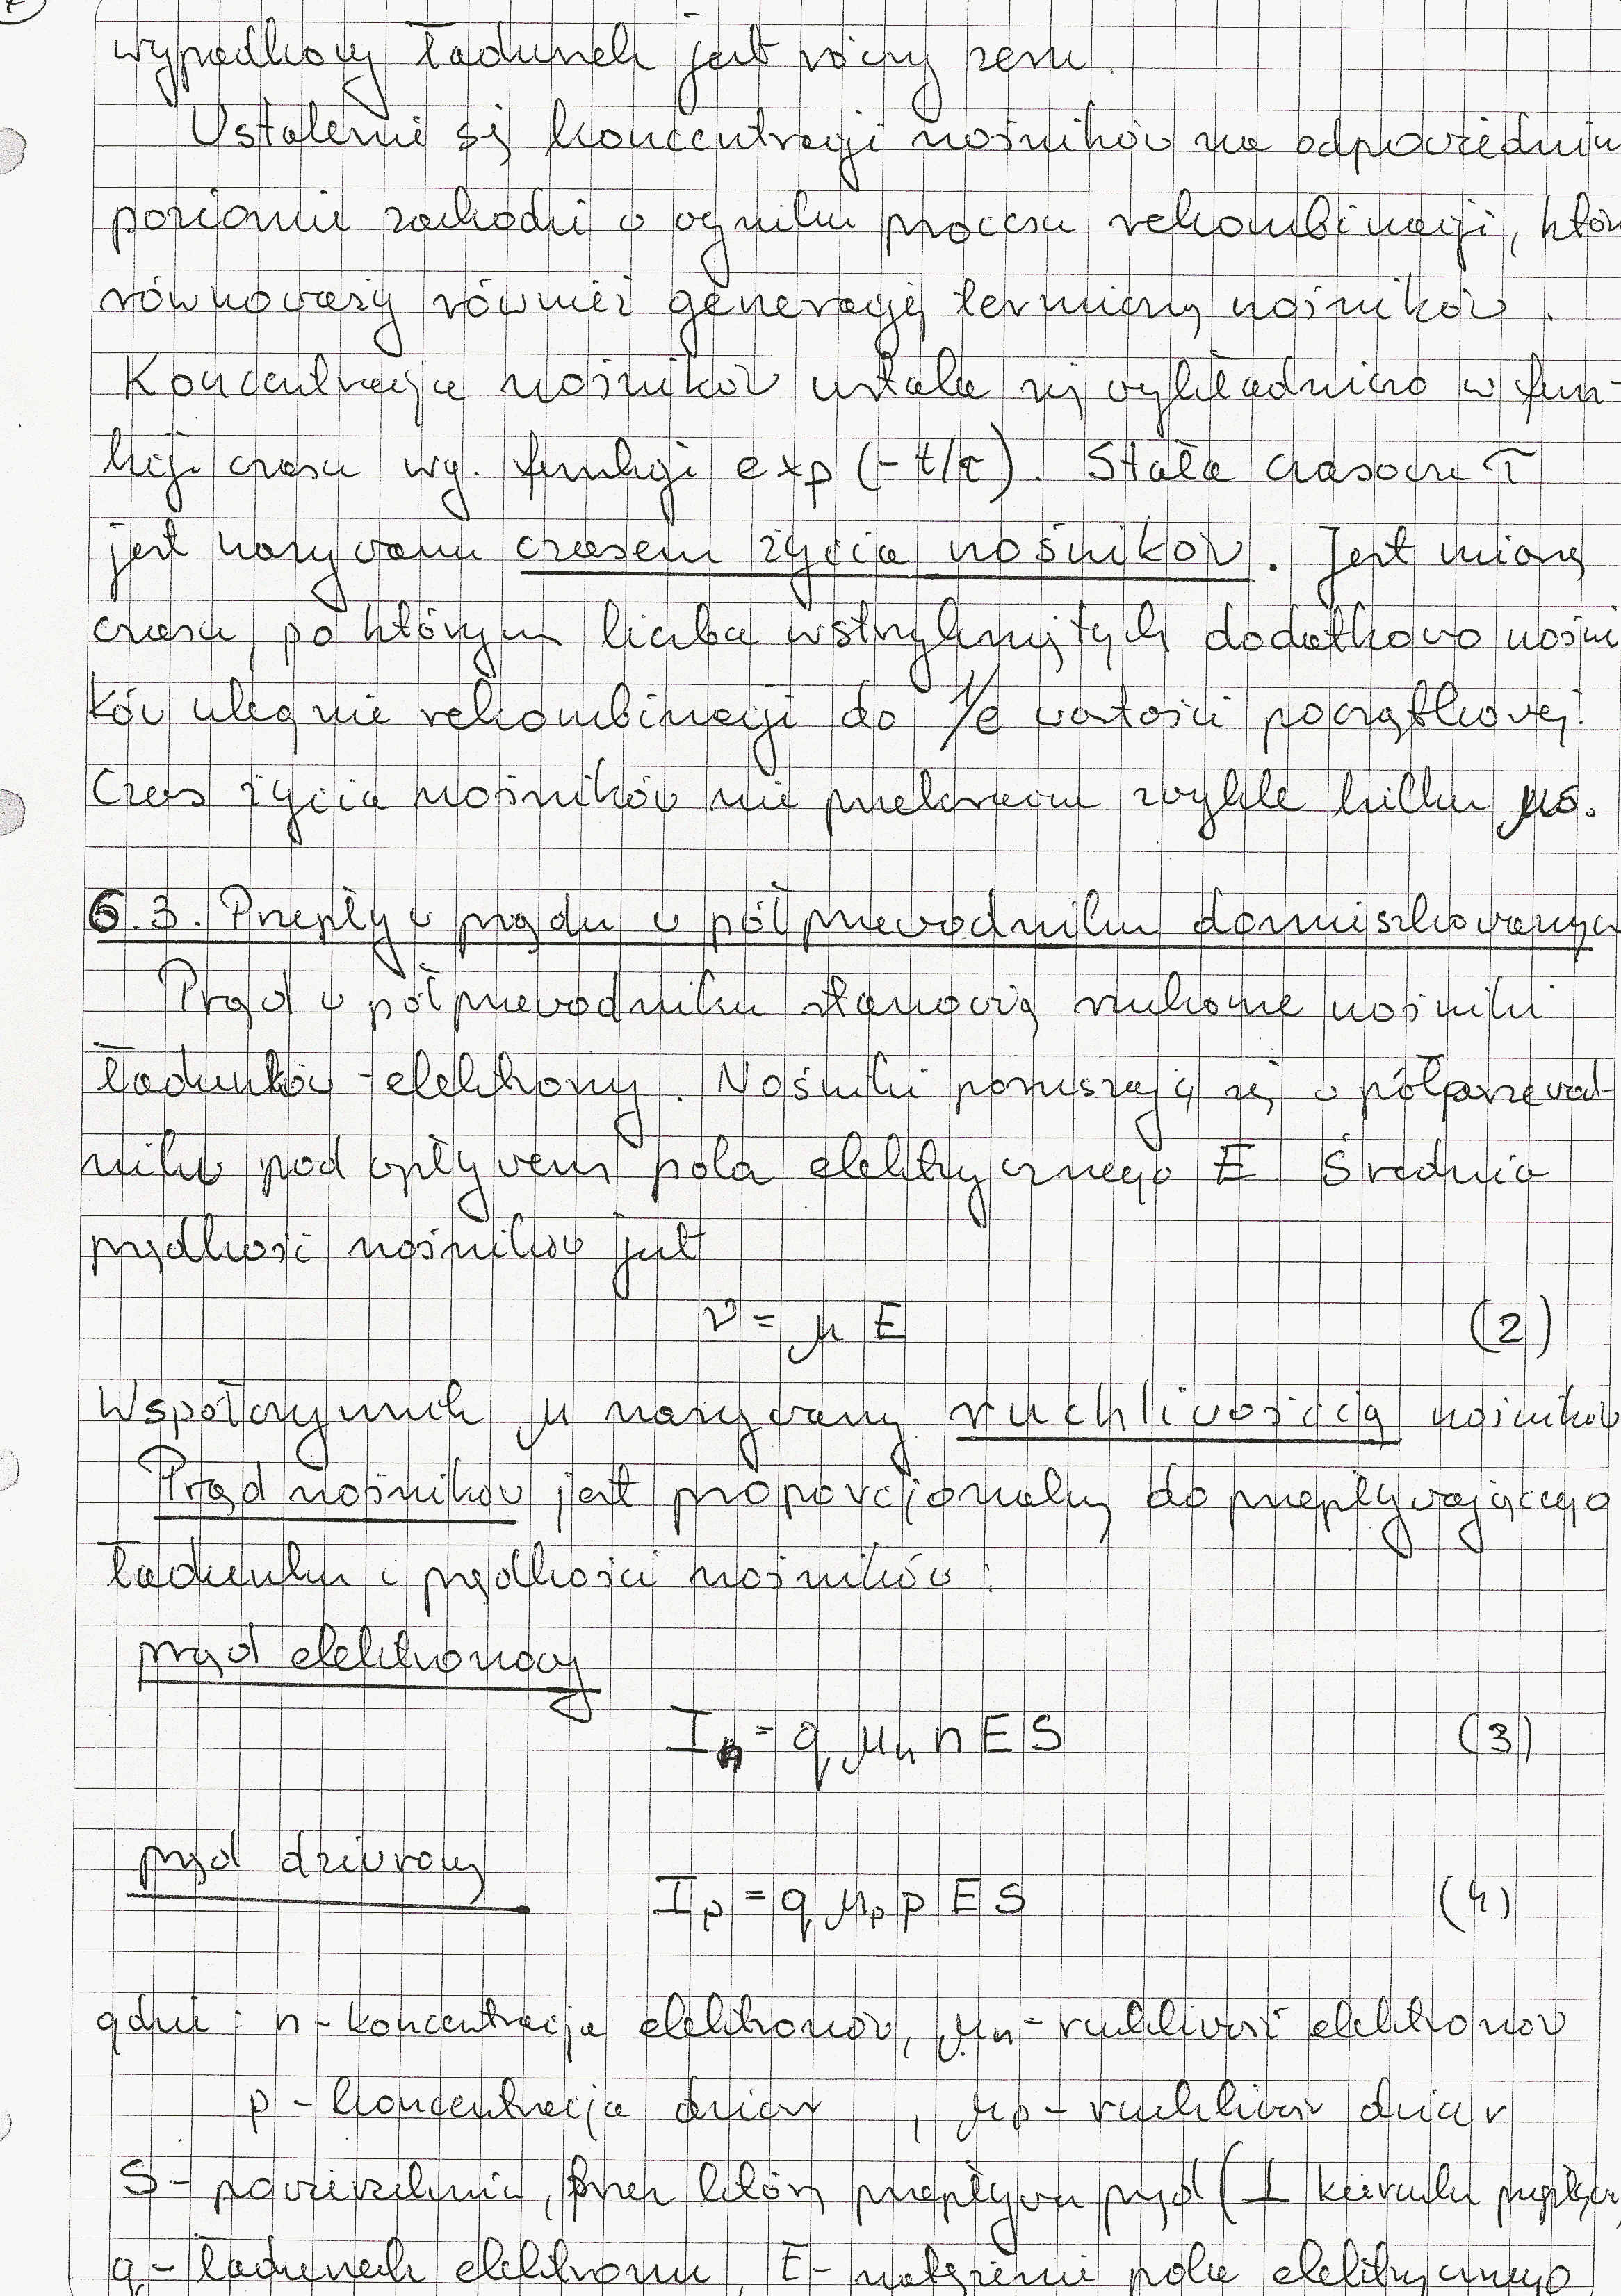 wypadkowy ładunek jest równy zeru.
Ustalenie się koncentracji nośników na odpowiednim
poziomie zachodzi w wyniku procesu rekombinacji, któr
równoważy również generację termiczną nośników.
Koncentracja nośników ustala się wykładniczo w fun-
kcji czasu wg. funkcji exp (-t/τ). Stała czasowa τ
jest nazywana czasem życia nośników. Jest miarą
czasu, po którym liczba wstrzykniętych dodatkowo nośni
ków ulegnie rekombinacji do 1/e wartości początkowej.
Czas życia nośników nie przekracza zwykle kilku μs.
6.3. Przepływ prądu w półprzewodniku domieszkowanym
Prąd w półprzewodniku stanowią ruchome nośniki
ładunków - elektrony. Nośniki poruszają się w półprzewod-
niku pod wpływem pola elektrycznego E. Średnia
prędkość nośników jest
v = μ E (2)
Współczynnik μ nazywany ruchliwością nośników
Prąd nośników jest proporcjonalny do przepływającego
ładunku i prędkości nośników:
prąd elektronowy
In = q μn n E S (3)
prąd dziurowy
Ip = q μp p E S (4)
gdzie: n - koncentracja elektronów, μn - ruchliwość elektronów
p - koncentracja dziur, μp - ruchliwość dziur
S - powierzchnia, przez którą przepływa prąd (⊥ kierunku
q - ładunek elektronu, E - natężenie pola elektrycznego